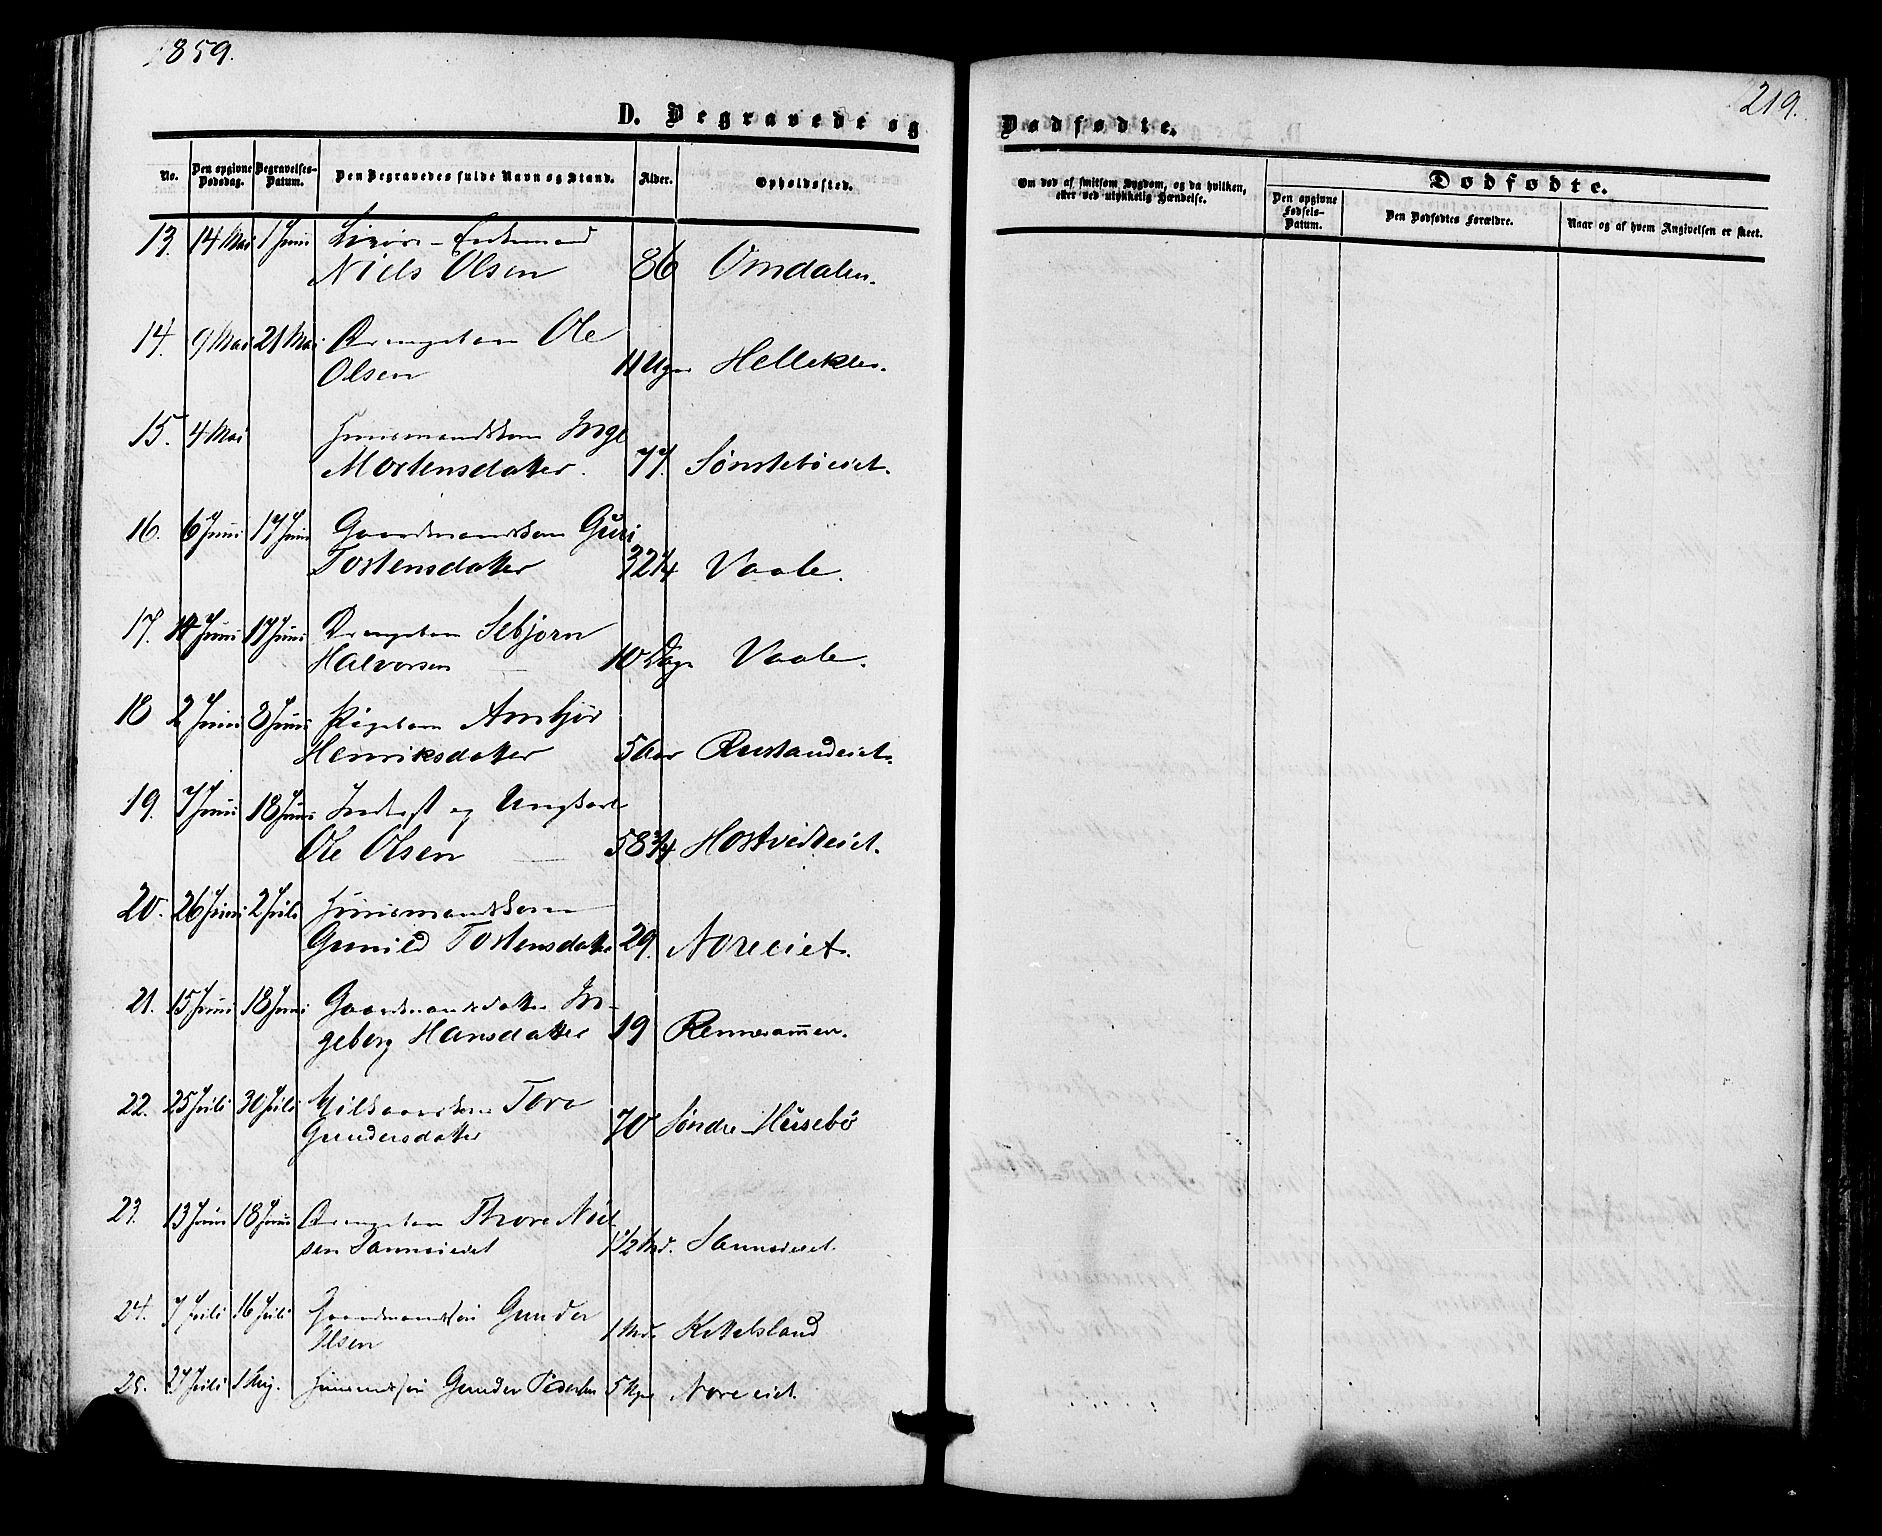 1859.
219.
D. Begravede og Dødfødte.
No. Den opgivne Dødsdag. Begravelses-Datum. Den Begravedes fulde Navn og Stand. Alder. Opholdssted.
Om død af smitsom Sygdom, og da hvilken, eller ved ulykkelig Hændelse.
Dødfødte.
Den opgivne Fødsels-Datum. Den Dødfødtes Forældre. Naar og af hvem Angivelsen er skeet.
13. 14 Mai 1 Juni Enkemand
Niels Olsen 86 Omdalen.
14. 9 Mai 21 Mai Drengebarn Ole
Olsen 11 Uger Helleklev.
15. 4 Mai Huusmandskone Inge
Mortensdatter. 77. Sønstebøeiet.
16. 6 Juni 17 Juni Gaardmandskone Guri
Tostensdatter 32 1/4 Vaale.
17. 14 Juni 17 Juni Drengebarn Sebjørn
Halvorsen 10 Dage Vaale.
18 2 Juni 8 Juni Pigebarn Anbjør
Henriksdatter 5 Aar Rustandeiet.
19. 7 Juni 18 Juni Inderst og Ungkarl
Ole Olsen 58 3/4 Hostvedteiet.
20. 26 Juni 2 Juli Huusmandskone
Gunild Tostensdatter 29. Noreeiet.
21. 15 Juni 18 Juni Gaardmansdatter In-
geborg Hansdatter 19 Renneramen.
22. 25 Juli 30 Juli Toro
Gundersdatter 70 Søndre Husebö
23. 13 Juni 18 Juni Drengebarn Thore Niel
sen 1 1/2 Md.
24. 7 Juli 16 Juli Gaardmandssøn Gunder
Olsen 1 Md. Kittelsland
25. 27 Juli 1 Aug. Huusmandssøn Gunder Pedersen 5 Uger Noreeiet.